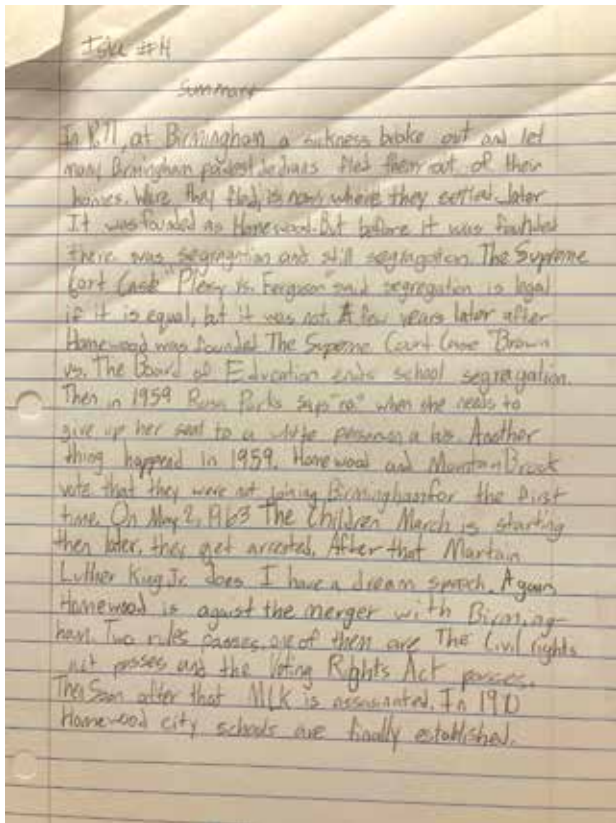 #4
Summary
at Birmingham a sickness broke out and let
many Birmingham fled them out of their
homes. Were they fled, is now where they settled. Later
It was founded as Homewood. But before it was founded
there was segregation and still segragation. The Supreme
Cort Case "Plessy vs. Ferguson" said segregation is legal
if it is equal, but it was not. A few years later after
Homewood was founded The Supreme Court Case "Brown
vs. The Board of Education ends school segragation.
Then in 1959 Rosa Parks says "no" when she needs to
give up her seat to a white person on a bus. Another
thing happend in 1959. Homewood and Mountain Brook
vote that they were not joining Birmingham for the first
time. On May 2, 1963 The Children March is starting
then later, they get arrested. After that Martain
Luther King Jr. does I have a dream speech. Again
Homewood is agaist the merger with Birming-
ham. Two rules passes. one of them are The Civil rights
act passes and the Voting Rights Act passes.
Then Soon after that MLK is assasinated. In
Homewood city schools are finally established.